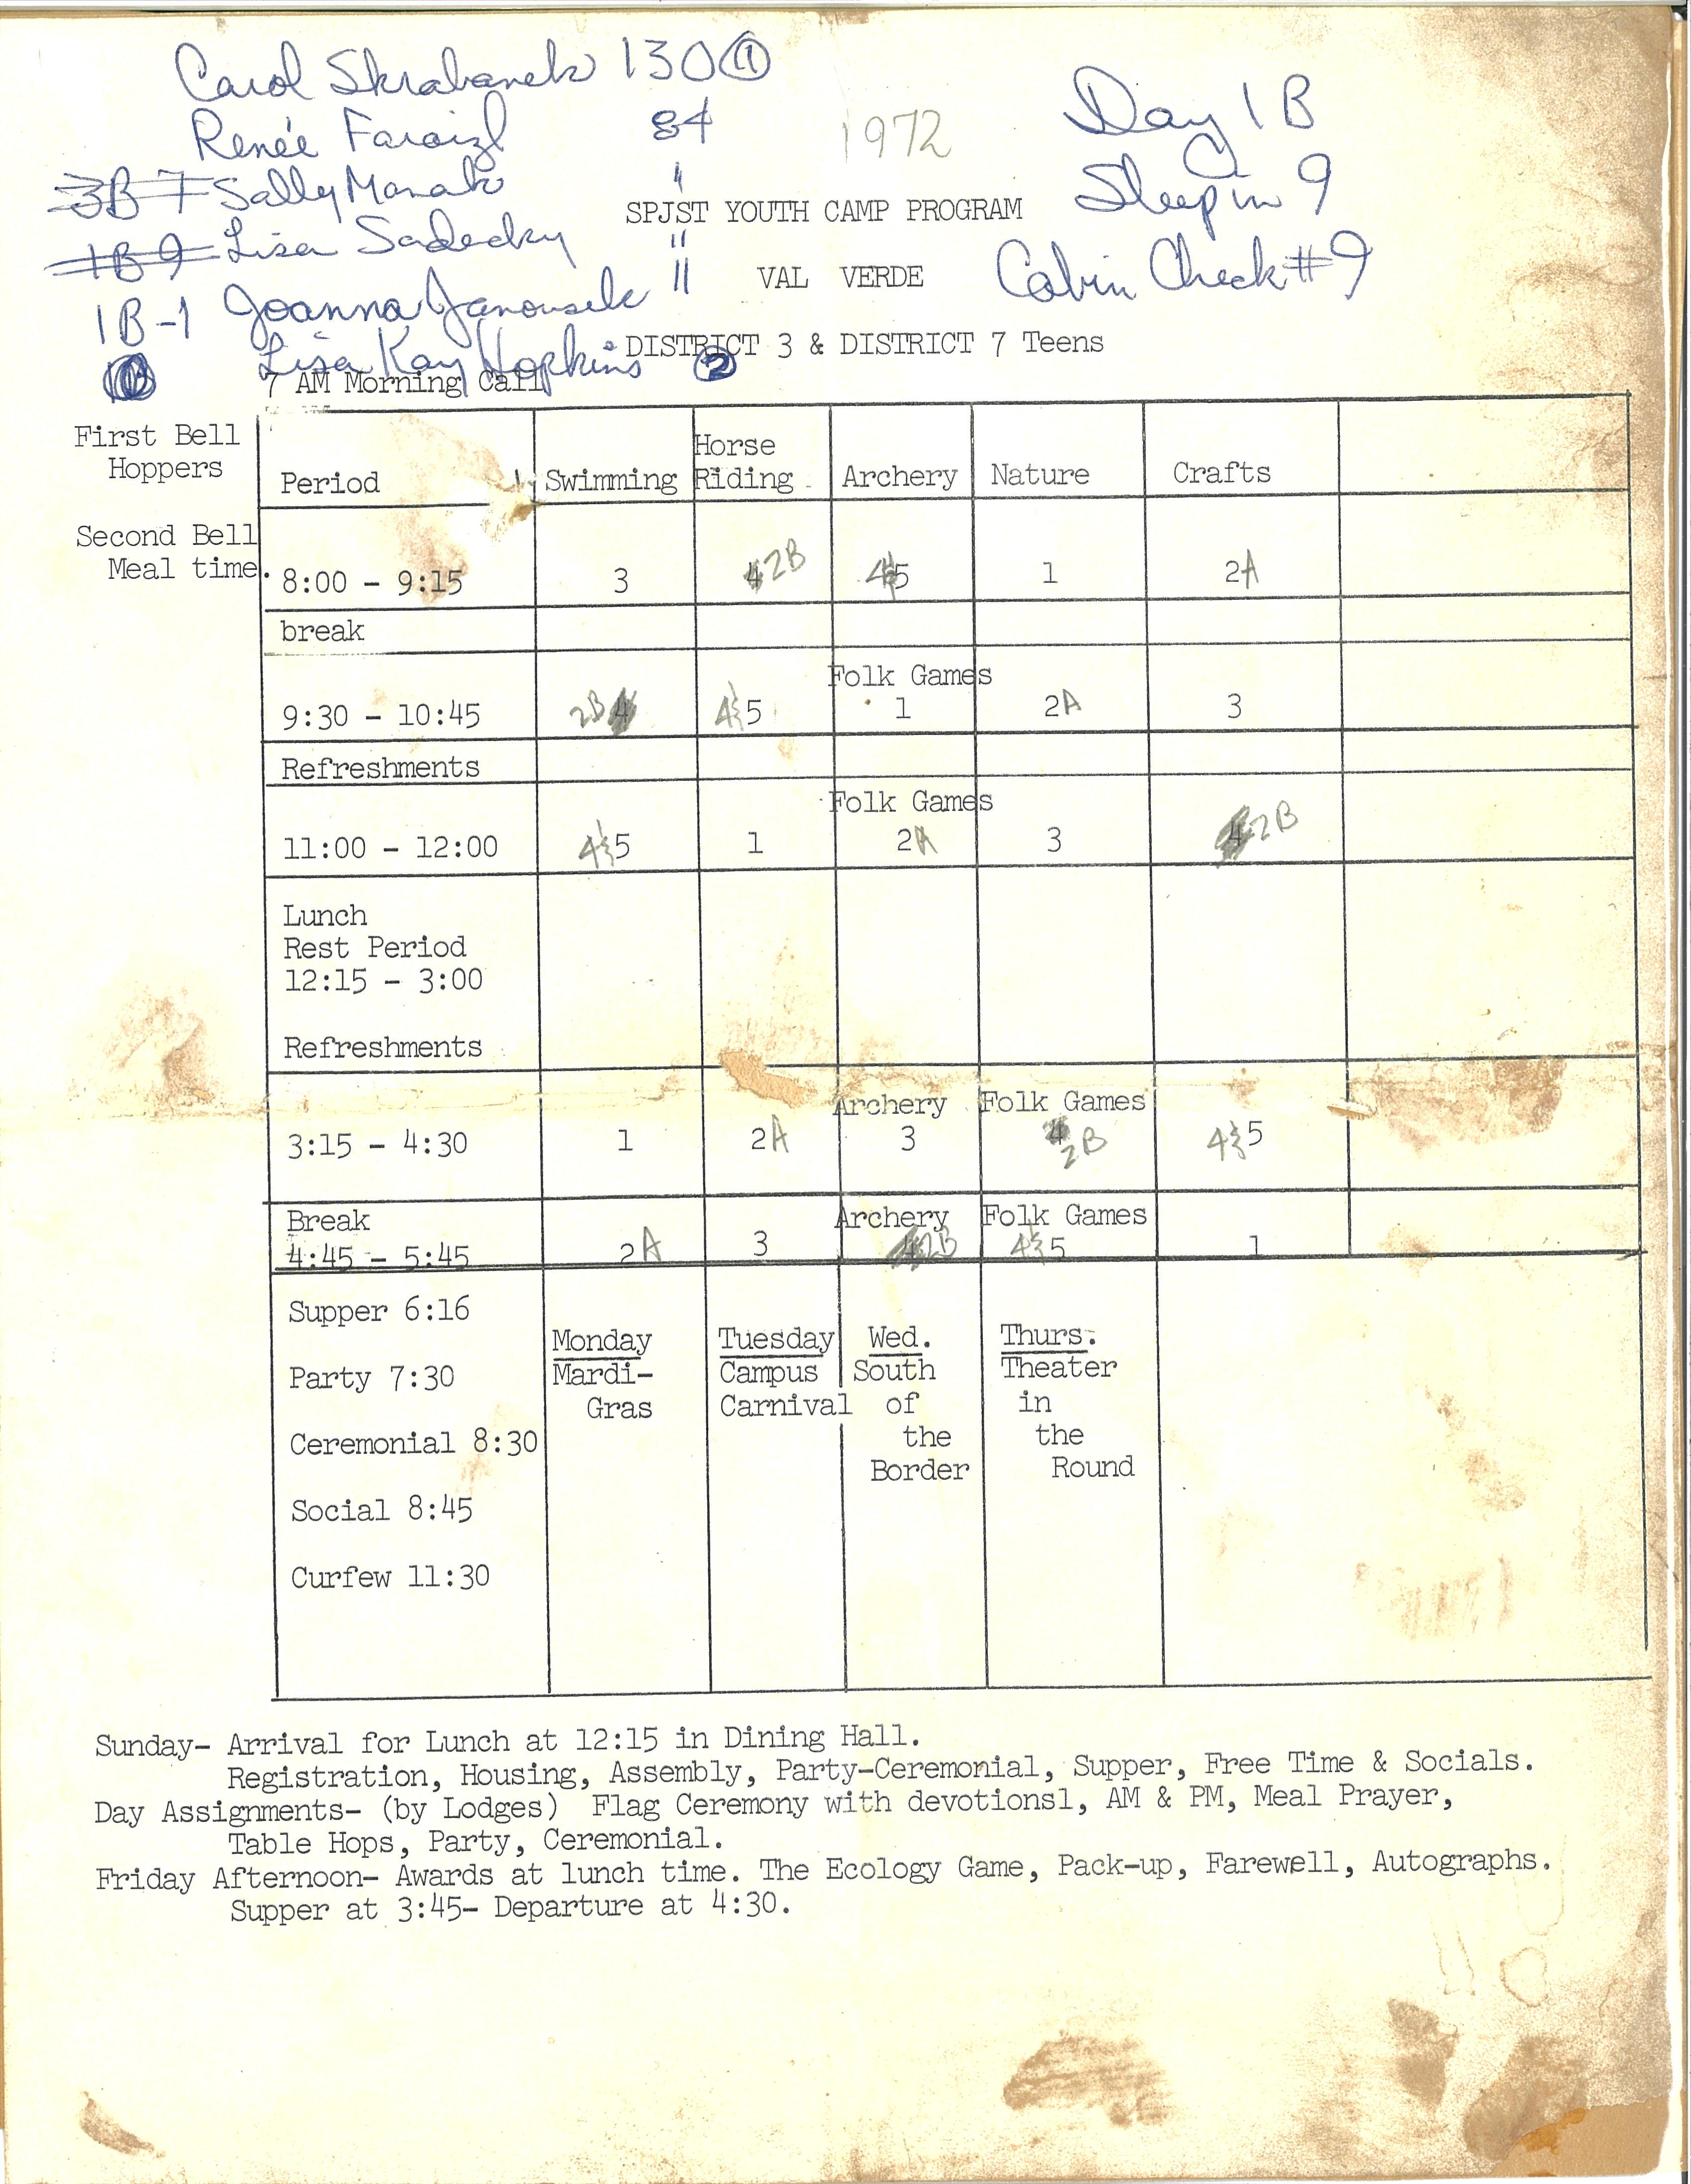 Carol Skrabanek 130 (1)
Renée Faraizl 84 1972 Day 1B
3B 7 Sally Marak " Sleep in 9
SPJST YOUTH CAMP PROGRAM
1B 9 Lisa Sadecky "
VAL VERDE Cabin Check #9
1B-1 Joanna Janousek "
DISTRICT 3 & DISTRICT 7 Teens
Lisa Kay Hopkins 2
7 AM Morning Call
First Bell
Hoppers
Period Swimming Horse Riding Archery Nature Crafts
Second Bell
Meal time.
8:00 - 9:15 3 2B 4&5 1 2A
break
Folk Games
9:30 - 10:45 2B 4&5 1 2A 3
Refreshments
Folk Games
11:00 - 12:00 4&5 1 2A 3 2B
Lunch
Rest Period
12:15 - 3:00
Refreshments
Archery Folk Games
3:15 - 4:30 1 2A 3 2B 4&5
Break Archery Folk Games
4:45 - 5:45 2A 3 2B 4&5 1
Supper 6:16
Monday Tuesday Wed. Thurs.
Party 7:30 Mardi- Campus South Theater
Gras Carnival of in
Ceremonial 8:30 the the
Border Round
Social 8:45
Curfew 11:30
Sunday- Arrival for Lunch at 12:15 in Dining Hall.
Registration, Housing, Assembly, Party-Ceremonial, Supper, Free Time & Socials.
Day Assignments- (by Lodges) Flag Ceremony with devotionsl, AM & PM, Meal Prayer,
Table Hops, Party, Ceremonial.
Friday Afternoon- Awards at lunch time. The Ecology Game, Pack-up, Farewell, Autographs.
Supper at 3:45- Departure at 4:30.